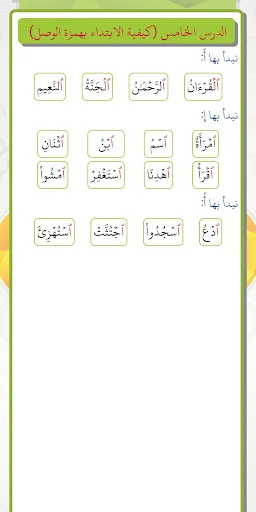 الدرس الخامس (كيفية الابتداء بهمزة الوصل)
نبدأ بها أَ:
ٱلْقُرْءَانُ ٱلرَّحْمَٰنُ ٱلْجَنَّةُ ٱلنَّعِيمِ
نبدأ بها إِ:
ٱمْرَأَةٌ ٱسْمُ ٱبْنُ ٱثْنَانِ
ٱقْرَأْ ٱهْدِنَا ٱسْتَغْفِرْ ٱمْشُوا۟
نبدأ بها أُ:
ٱدْعُ ٱسْجُدُوا۟ ٱجْتُثَّتْ ٱسْتُهْزِئَ